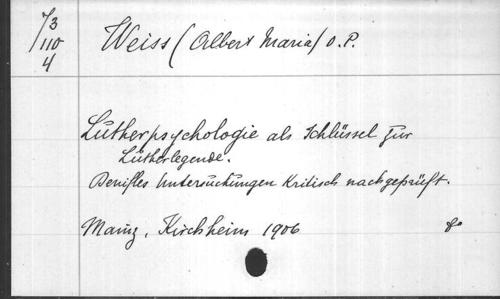 7/3
110
4
Weiss (Albert Maria) O.P.
Lutherpsychologie als Schlüssel zur
Lutherlegende.
Denifles Untersuchungen kritisch nachgeprüft.
Mainz, Kirchheim 1906
8°